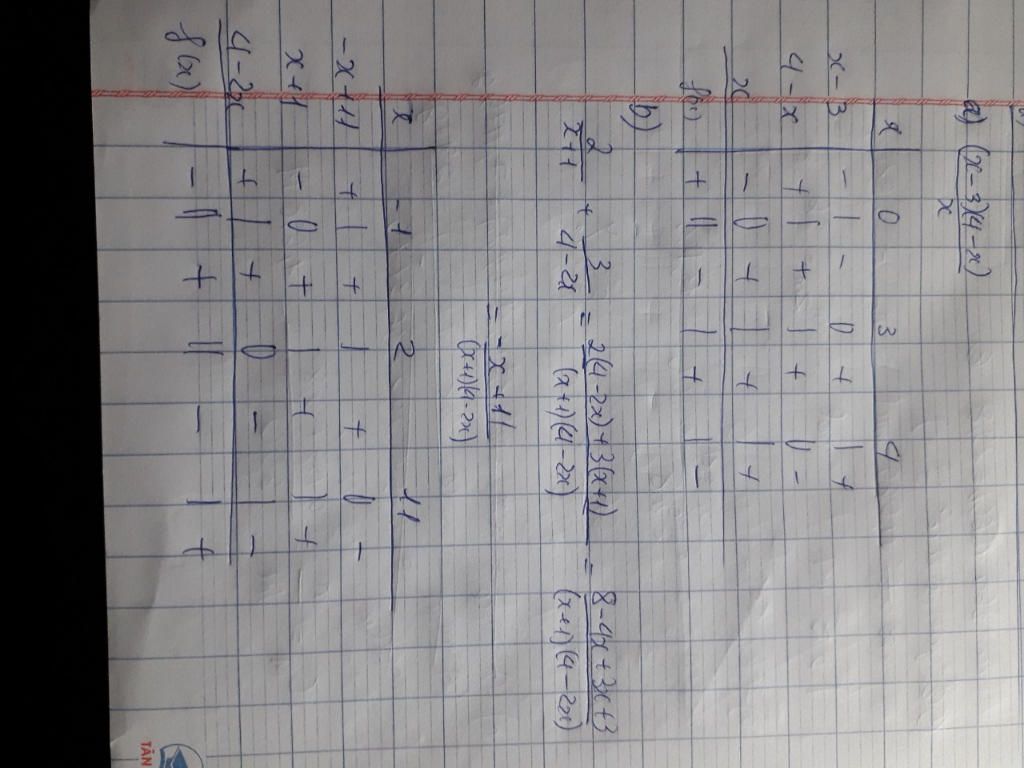 a) (x-3)(4-x)
x
x 0 3 4
x-3 - | - 0 + | +
4-x + | + | + 0 -
x - 0 + | + | +
f(x) + || - | + | -
b) 2/(x+1) + 3/(4-2x) = (2(4-2x)+3(x+1))/((x+1)(4-2x)) = (8-4x+3x+3)/((x+1)(4-2x))
= (-x+11)/((x+1)(4-2x))
x -1 2 11
-x+11 + | + | + 0 -
x+1 - 0 + | + | +
4-2x + | + 0 - | -
f(x) - || + || - | +
TÂN